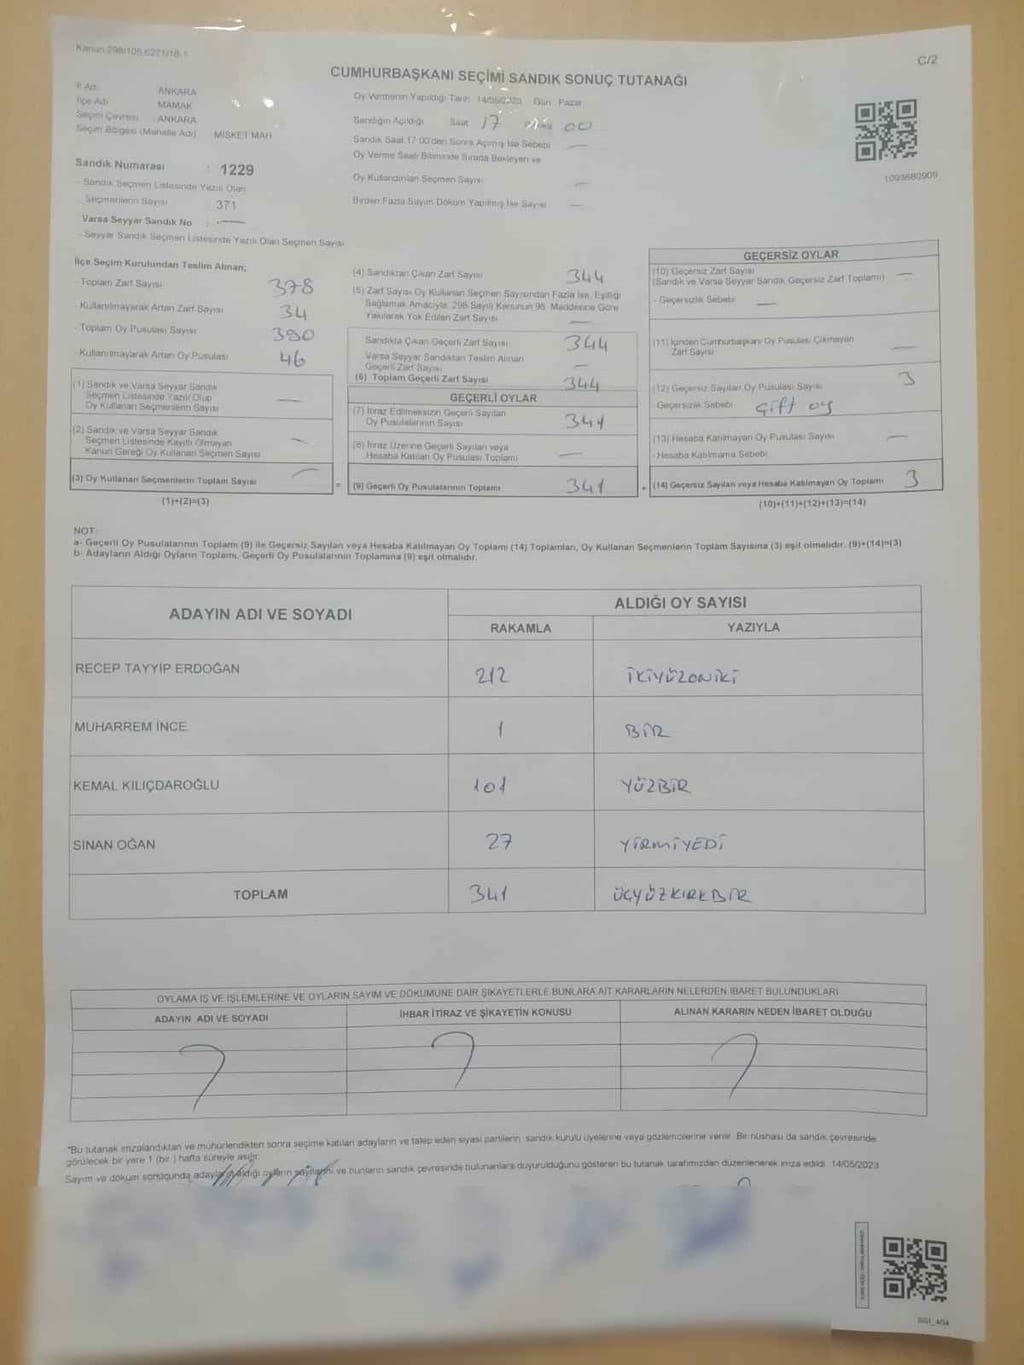 Kanun 298/105,6271/18-1
C/2
CUMHURBAŞKANI SEÇİMİ SANDIK SONUÇ TUTANAĞI
İl Adı ANKARA
İlçe Adı MAMAK
Seçim Çevresi : ANKARA
Seçim Bölgesi (Mahalle Adı) MİSKET MAH
Oy Vermenin Yapıldığı Tarih 14/05/2023 Gün Pazar
Sandığın Açıldığı Saat 17 00
Sandık Saat 17:00'den Sonra Açılmış İse Sebebi —
Oy Verme Saati Bitiminde Sırada Bekleyen ve
Oy Kullandırılan Seçmen Sayısı —
Birden Fazla Sayım Döküm Yapılmış İse Sayısı —
1093680909
Sandık Numarası : 1229
- Sandık Seçmen Listesinde Yazılı Olan
Seçmenlerin Sayısı 371
Varsa Seyyar Sandık No : —
- Seyyar Sandık Seçmen Listesinde Yazılı Olan Seçmen Sayısı
İlçe Seçim Kurulundan Teslim Alınan;
- Toplam Zarf Sayısı 378
- Kullanılmayarak Artan Zarf Sayısı 34
- Toplam Oy Pusulası Sayısı 390
- Kullanılmayarak Artan Oy Pusulası 46
(1) Sandık ve Varsa Seyyar Sandık
Seçmen Listesinde Yazılı Olup
Oy Kullanan Seçmenlerin Sayısı —
(2) Sandık ve Varsa Seyyar Sandık
Seçmen Listesinde Kayıtlı Olmayan
Kanun Gereği Oy Kullanan Seçmen Sayısı —
(3) Oy Kullanan Seçmenlerin Toplam Sayısı —
(1)+(2)=(3)
(4) Sandıktan Çıkan Zarf Sayısı 344
(5) Zarf Sayısı Oy Kullanan Seçmen Sayısından Fazla İse, Eşitliği
Sağlamak Amacıyla, 298 Sayılı Kanunun 98. Maddesine Göre
Yakılarak Yok Edilen Zarf Sayısı —
Sandıkta Çıkan Geçerli Zarf Sayısı 344
Varsa Seyyar Sandıktan Teslim Alınan
Geçerli Zarf Sayısı —
(6) Toplam Geçerli Zarf Sayısı 344
GEÇERLİ OYLAR
(7) İtiraz Edilmeksizin Geçerli Sayılan
Oy Pusulalarının Sayısı 341
(8) İtiraz Üzerine Geçerli Sayılan veya
Hesaba Katılan Oy Pusulası Toplamı —
= (9) Geçerli Oy Pusulalarının Toplamı 341
GEÇERSİZ OYLAR
(10) Geçersiz Zarf Sayısı —
(Sandık ve Varsa Seyyar Sandık Geçersiz Zarf Toplamı)
- Geçersizlik Sebebi —
(11) İçinden Cumhurbaşkanı Oy Pusulası Çıkmayan
Zarf Sayısı —
(12) Geçersiz Sayılan Oy Pusulası Sayısı 3
- Geçersizlik Sebebi Çift oy
(13) Hesaba Katılmayan Oy Pusulası Sayısı —
- Hesaba Katılmama Sebebi
+ (14) Geçersiz Sayılan veya Hesaba Katılmayan Oy Toplamı 3
(10)+(11)+(12)+(13)=(14)
NOT:
a- Geçerli Oy Pusulalarının Toplamı (9) ile Geçersiz Sayılan veya Hesaba Katılmayan Oy Toplamı (14) Toplamları, Oy Kullanan Seçmenlerin Toplam Sayısına (3) eşit olmalıdır. (9)+(14)=(3)
b- Adayların Aldığı Oyların Toplamı, Geçerli Oy Pusulalarının Toplamına (9) eşit olmalıdır.
ADAYIN ADI VE SOYADI
ALDIĞI OY SAYISI
RAKAMLA YAZIYLA
RECEP TAYYİP ERDOĞAN 212 İKİYÜZONİKİ
MUHARREM İNCE 1 BİR
KEMAL KILIÇDAROĞLU 101 YÜZBİR
SİNAN OĞAN 27 YİRMİYEDİ
TOPLAM 341 ÜÇYÜZKIRKBİR
OYLAMA İŞ VE İŞLEMLERİNE VE OYLARIN SAYIM VE DÖKÜMÜNE DAİR ŞİKAYETLERLE BUNLARA AİT KARARLARIN NELERDEN İBARET BULUNDUKLARI
ADAYIN ADI VE SOYADI İHBAR İTİRAZ VE ŞİKAYETİN KONUSU ALINAN KARARIN NEDEN İBARET OLDUĞU
*Bu tutanak imzalandıktan ve mühürlendikten sonra seçime katılan adayların ve talep eden siyasi partilerin, sandık kurulu üyelerine veya gözlemcilerine verilir. Bir nüshası da sandık çevresinde
görülecek bir yere 1 (bir ) hafta süreyle asılır.
Sayım ve döküm sonucunda adayların aldığı oyların sayılarını ve bunların sandık çevresinde bulunanlara duyurulduğunu gösteren bu tutanak tarafımızdan düzenlenerek imza edildi. 14/05/2023